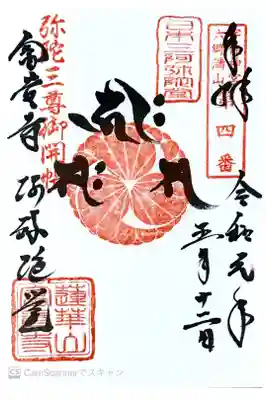 奉拝
四番
令和元年
五月十二日
日本三阿弥陀堂
弥陀三尊御開帳
富貴寺
阿弥陀堂
蓮華山
CS CamScannerでスキャン